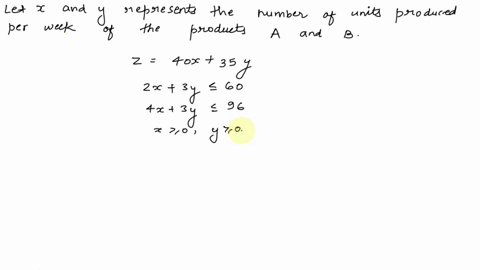 Let x and y represents the number of units produced
per week of the products A and B.
Z = 40x + 35y
2x + 3y ≤ 60
4x + 3y ≤ 96
x ≥ 0, y ≥ 0